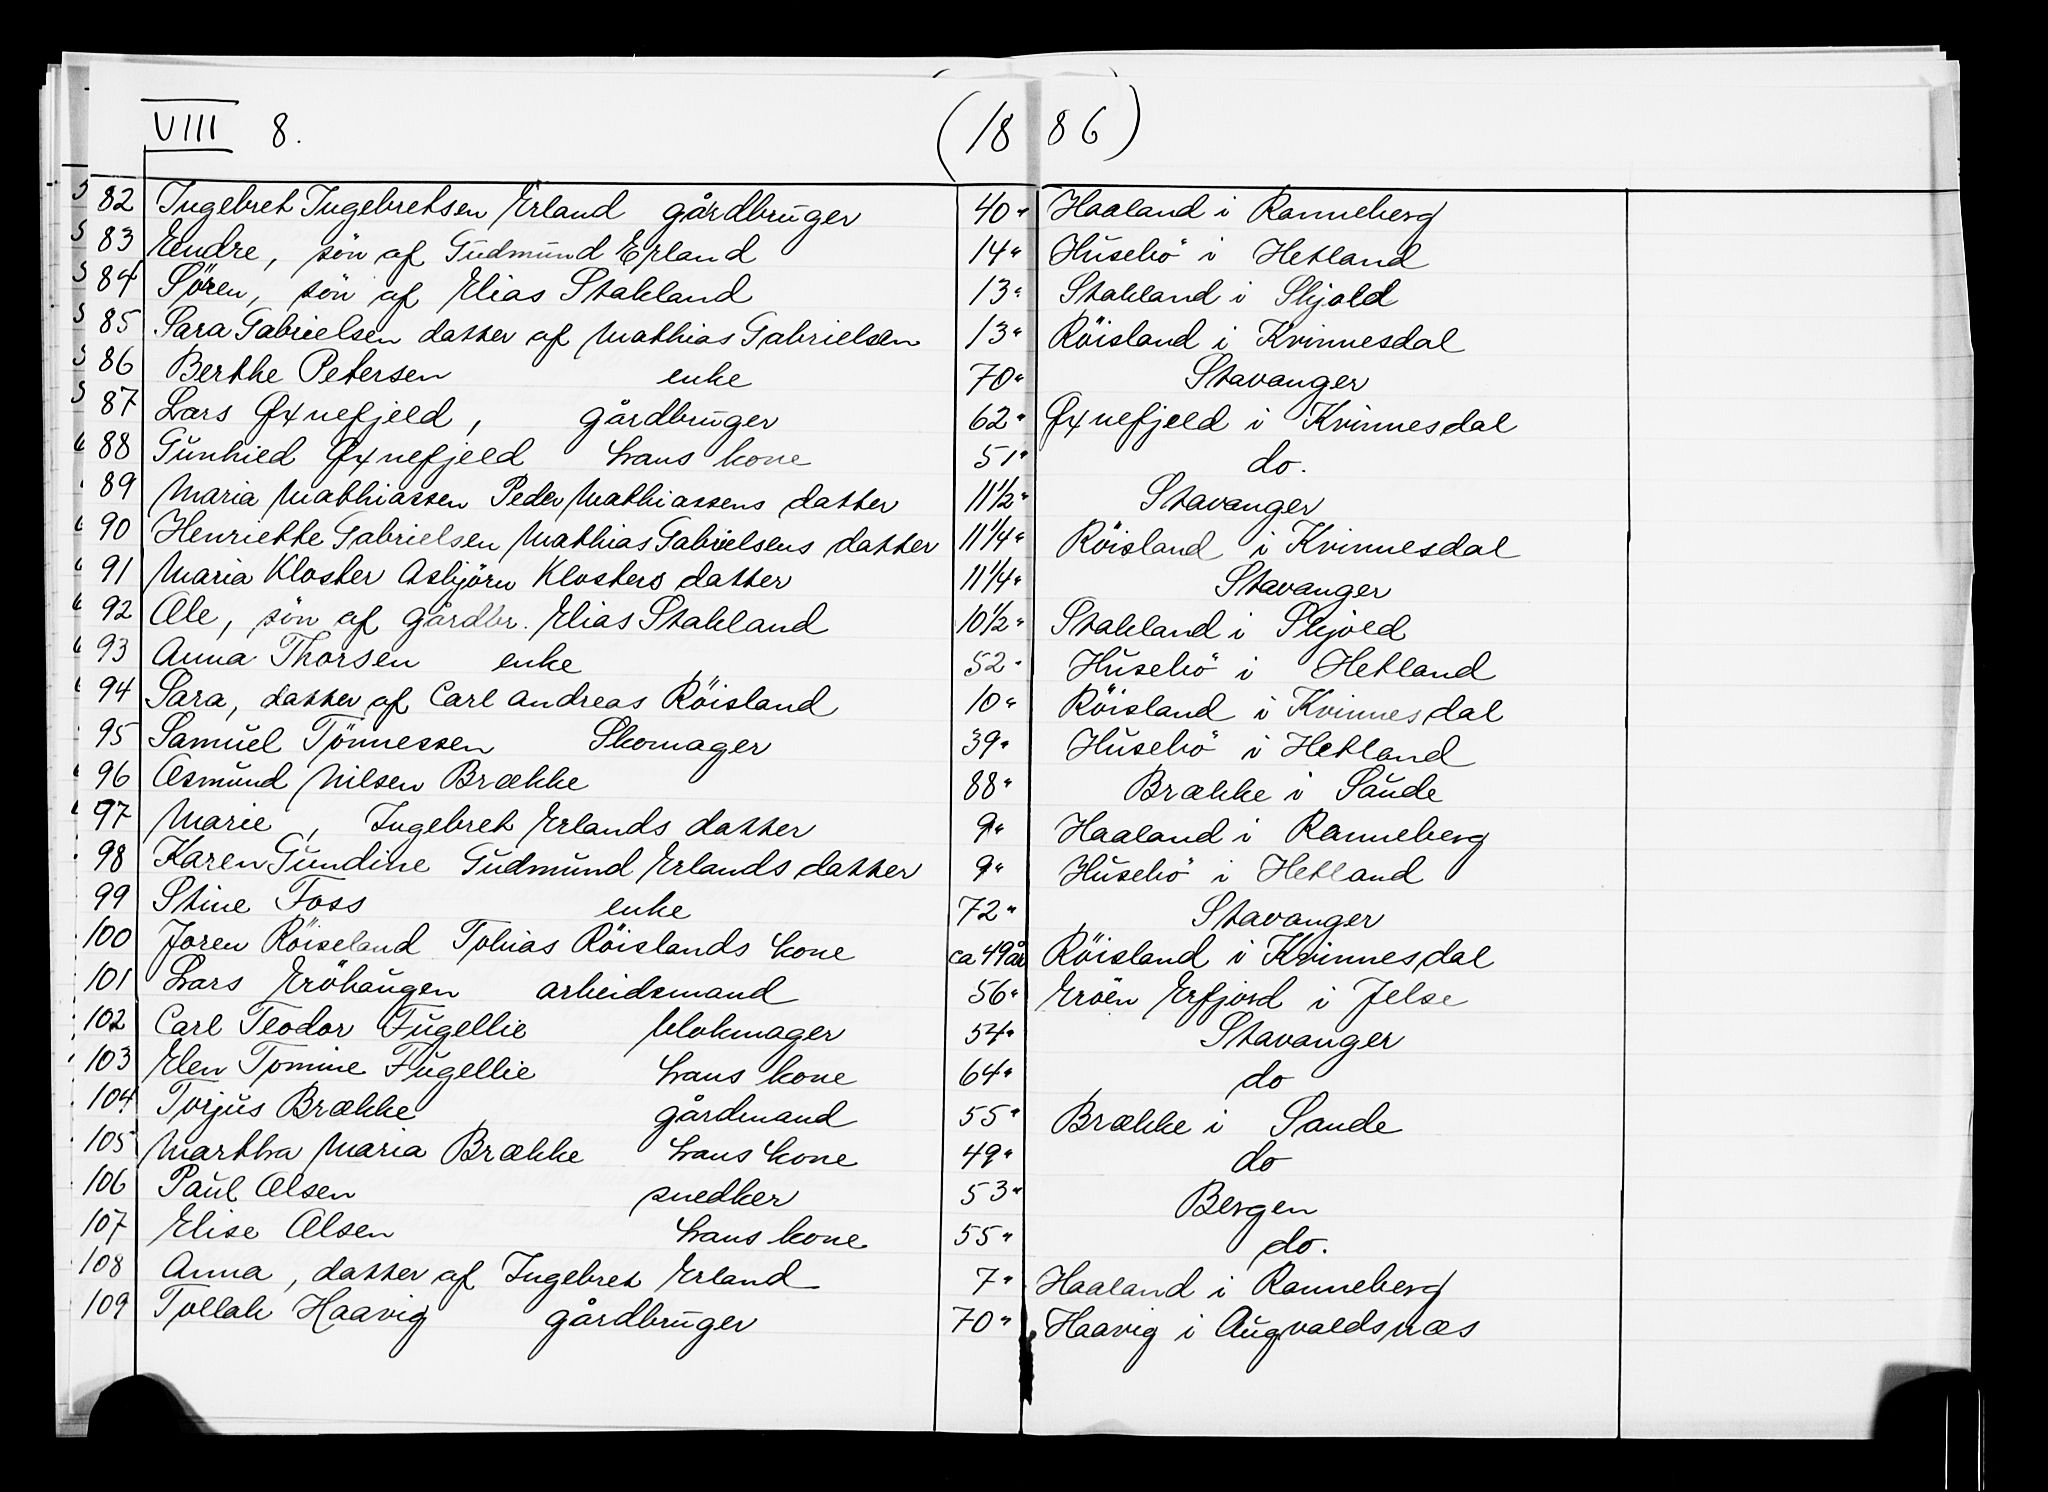 VIII 8. (1886)
82 Ingebret Ingebretsen Erland gårdbruger 40" Haaland i Ranneberg
83 Endre, sön af Gudmund Erland 14" Husebö i Hetland
84 Sören, sön af Elias Stakland 13" Stakland i Skjold
85 Sara Gabrielsen datter af Mathias Gabrielsen 13" Röisland i Kvinnesdal
86 Berthe Petersen enke 70" Stavanger
87 Lars Øxnefjeld, gårdbruger 62" Øxnefjeld i Kvinnesdal
88 Gunhild Øxnefjeld hans kone 51" do.
89 Maria Mathiassen Peder Mathiassens datter 11½" Stavanger
90 Henriette Gabrielsen Mathias Gabrielsens datter 11¼" Röisland i Kvinnesdal
91 Maria Kloster Asbjörn Klosters datter 11¼" Stavanger
92 Ole, sön af gårdbr. Elias Stakland 10½" Stakland i Skjold
93 Anna Thorsen enke 52" Husebö i Hetland
94 Sara, datter af Carl Andreas Röisland 10" Röisland i Kvinnesdal
95 Samuel Tönnessen Skomager 39" Husebö i Hetland
96 Osmund Nilsen Brække 88" Brække i Saude
97 Marie, Ingebret Erlands datter 9" Haaland i Ranneberg
98 Karen Gundine Gudmund Erlands datter 9" Husebö i Hetland
99 Stine Foss enke 72" Stavanger
100 Joren Röiseland Tobias Röislands kone ca 49 år Röisland i Kvinnesdal
101 Lars Eröhaugen arbeidsmand 56" Eröen Erfjord i Jelse
102 Carl Teodor Fugellie blokmager 54" Stavanger
103 Elen Tomine Fugellie hans kone 64" do
104 Torjus Brække gårdmand 55" Brække i Sande
105 Martha Maria Brække hans kone 49" do
106 Paul Olsen snedker 53" Bergen
107 Elise Olsen hans kone 55" do.
108 Anna, datter af Ingebret Erland 7" Haaland i Ranneberg
109 Tollak Haavig gårdbruger 70" Haavig i Augvaldsnæs